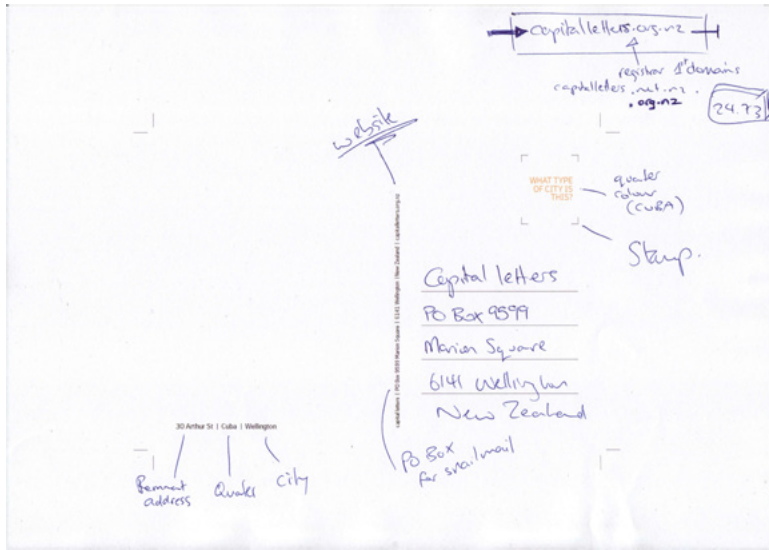 capitalletters.org.nz
registrar 1st domains
capitalletters.net.nz.
.org.nz
24.73
website
WHAT TYPE
OF CITY IS
THIS?
quarter
colour
(CUBA)
Stamp.
capital letters | PO Box 9599 Marion Square | 6141 Wellington | New Zealand | capitalletters.org.nz
Capital letters
PO Box 9599
Marion Square
6141 Wellington
New Zealand
30 Arthur St | Cuba | Wellington
PO Box
for snailmail
address
Quarter
City